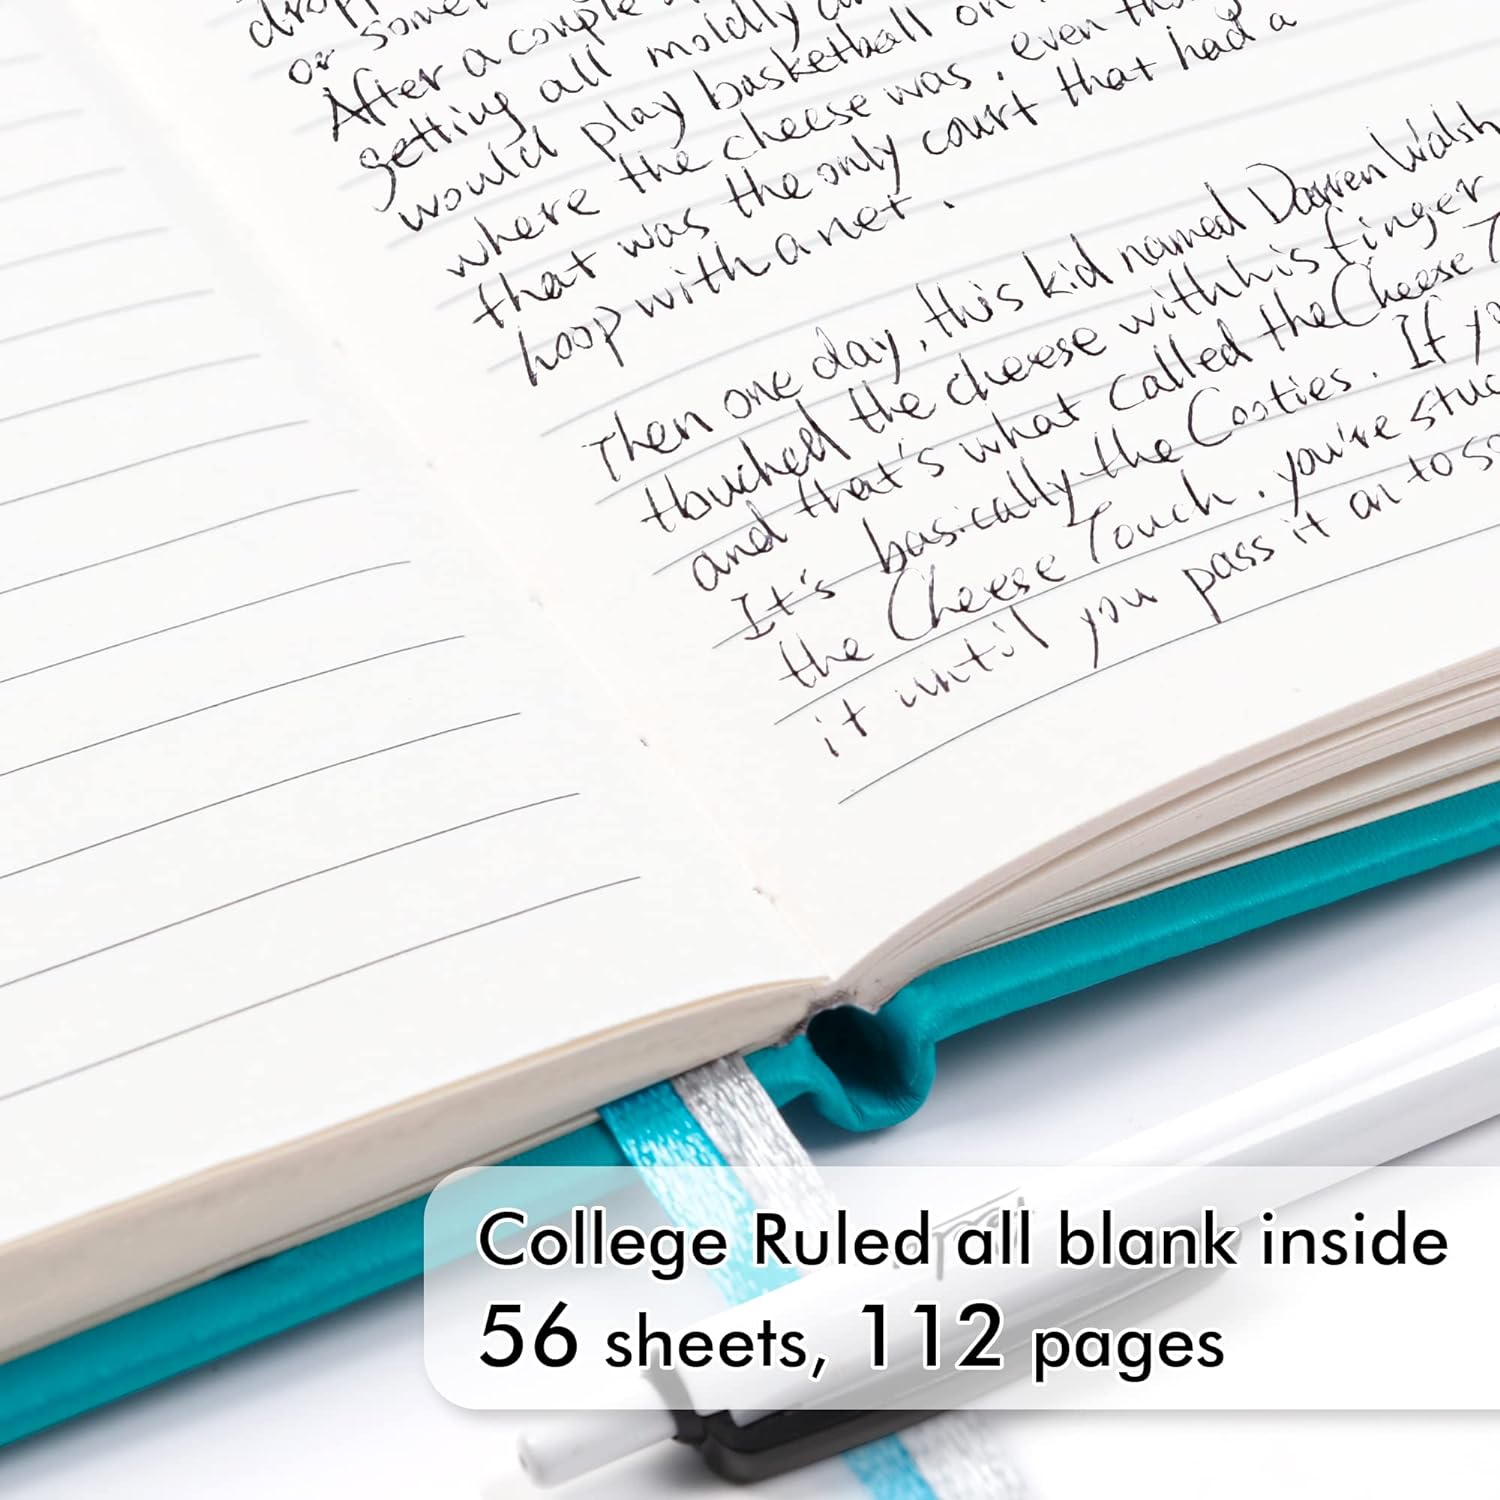 or some
After a couple
getting all moldly
would play basketball on
where the cheese was, even
that was the only court that had a
hoop with a net.
Then one day, this kid named Darren Walsh
thouched the cheese with his finger
and that's what called the Cheese T
It's basically the Cooties. If yo
the Cheese Touch, you're stuc
it until you pass it on to so
College Ruled all blank inside
56 sheets, 112 pages